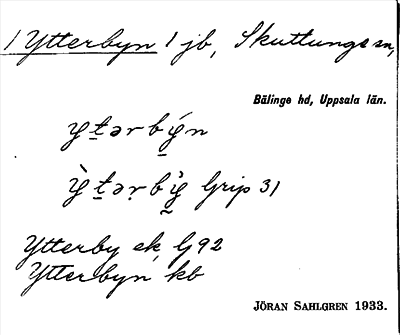 1 Ytterbyn 1 jb, Skuttunge sn,
Bälinge hd, Uppsala län.
yt̲ərbý̲n
ỳt̲ər̩bỳ̰ Grip 31
Ytterby ek G92
Ytterbyn kb
JÖRAN SAHLGREN 1933.